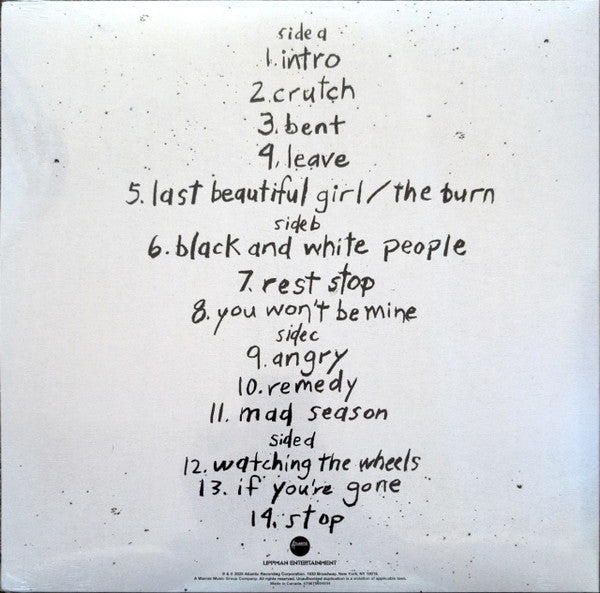 side a
1. intro
2. crutch
3. bent
4. leave
5. last beautiful girl/the burn
side b
6. black and white people
7. rest stop
8. you won't be mine
side c
9. angry
10. remedy
11. mad season
side d
12. watching the wheels
13. if you're gone
14. stop
LIPPMAN ENTERTAINMENT
℗ & © 2020 Atlantic Recording Corporation. 1633 Broadway, New York, NY 10019.
A Warner Music Group Company. All rights reserved. Unauthorized duplication is a violation of applicable laws.
Made in Canada.